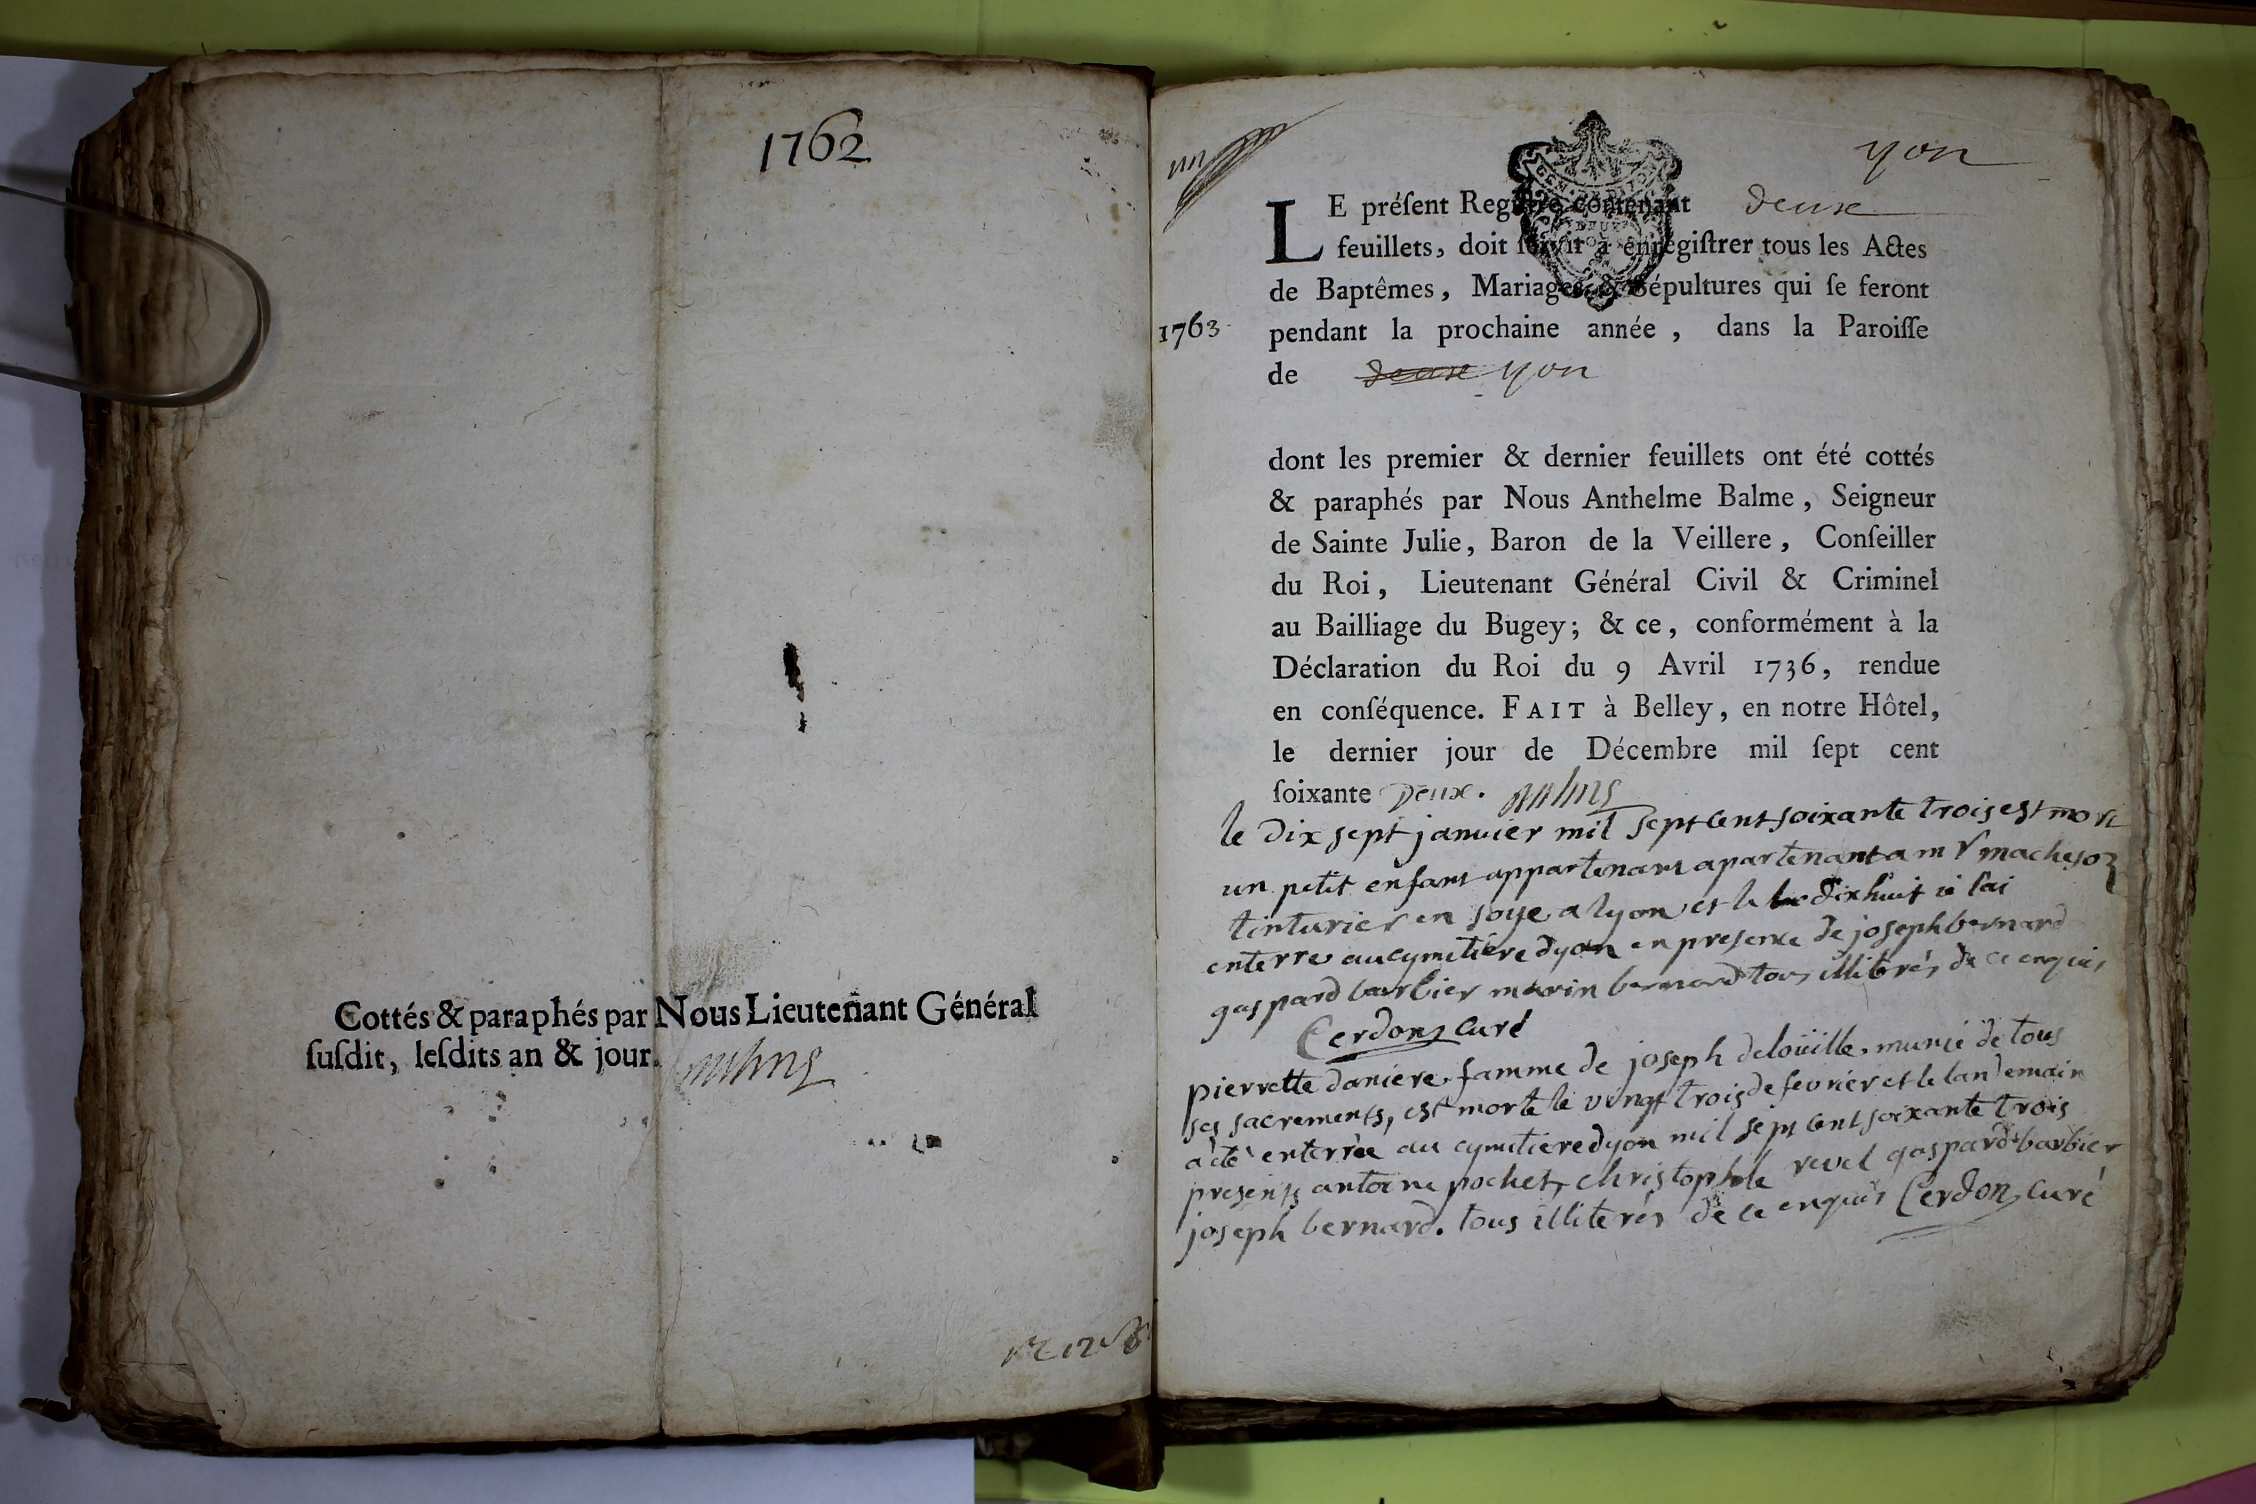 1762
Cottés & paraphés par Nous Lieutenant Général
ſuſdit, leſdits an & jour.
un
yon
LE préſent Regiſtre contenant deux
feuillets, doit ſervir à enrégiſtrer tous les Actes
de Baptêmes, Mariages & Sépultures qui ſe feront
1763 pendant la prochaine année, dans la Paroiſſe
de deux yon
dont les premier & dernier feuillets ont été cottés
& paraphés par Nous Anthelme Balme, Seigneur
de Sainte Julie, Baron de la Veillere, Conſeiller
du Roi, Lieutenant Général Civil & Criminel
au Bailliage du Bugey; & ce, conformément à la
Déclaration du Roi du 9 Avril 1736, rendue
en conſéquence. FAIT à Belley, en notre Hôtel,
le dernier jour de Décembre mil ſept cent
ſoixante Deux.
le dix sept janvier mil sept cent soixante trois est mort
un petit enfant appartenant apartenant a mr machezoz
tinturier en soye a lyon et le dixhuit ie l'ai
enterre au cymetiere dyon en presence de joseph bernard
gaspard barbier marin bernard tous illiterés de ce enquis
Cerdon curé
pierrette daniere famme de joseph deloüille, munié de tous
ses sacrements, est morte le vingt trois de fevrier et le landemain
a été enterrée au cymitiere dyon mil sept cent soixante trois
presents antoine pochet, christophle revel gaspard barbier
joseph bernard. tous illiterés de ce enquis Cerdon curé